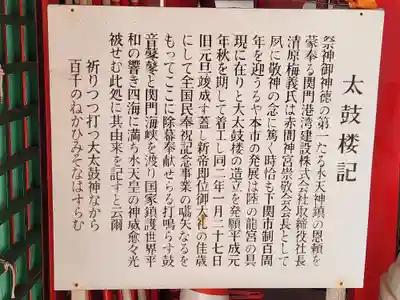 太鼓楼記
祭神御神徳の第一たる水天神鎮の恩頼を
蒙奉る関門港湾建設株式会社取締役社長
清原梅義氏は赤間神宮崇敬会会長として
夙に敬神の念に篤く時恰も下関市制百周
年を迎うるや本市の発展は陸の龍宮の具
現に在りと大太鼓楼の造立を発願平成元
年秋を期して着工し同二年一月二十七日
旧元旦竣成す蓋し新帝即位御大礼の佳歳
にして全国民奉祝記念事業の嚆矢なるを
もってここに除幕奉献せらる打鳴らす鼓
音鼕鼕と関門海峡を渡り国家鎮護世界平
和の響き四海に満ち水天皇の神威愈々光
被せむ此処に其由来を記すと云爾
祈りつつ打つ大太鼓神ながら
百千のねがひみそなはすらむ